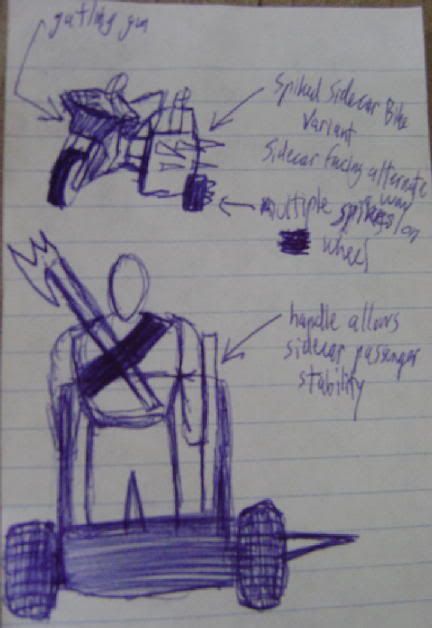 gatling gun
Spiked Sidecar Bike
Variant
Sidecar facing alternate
way
Multiple spikes on
wheel
handle allows
sidecar passenger
stability